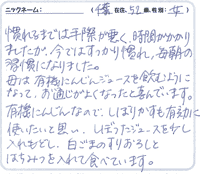 ニックネーム: ( 様 在住・52歳・性別: 女 )
慣れるまでは手際が悪く、時間がかかり
ましたが、今ではすっかり慣れ、毎朝の
習慣になりました。
母は有機にんじんジュースを飲むように
なって、お通じがよくなったと喜んでいます。
有機にんじんなので、しぼりかすも有効に
使いたいと思い、しぼったジュースを少し
入れもどし、白ごまのすりおろしと
はちみつを入れて食べています。